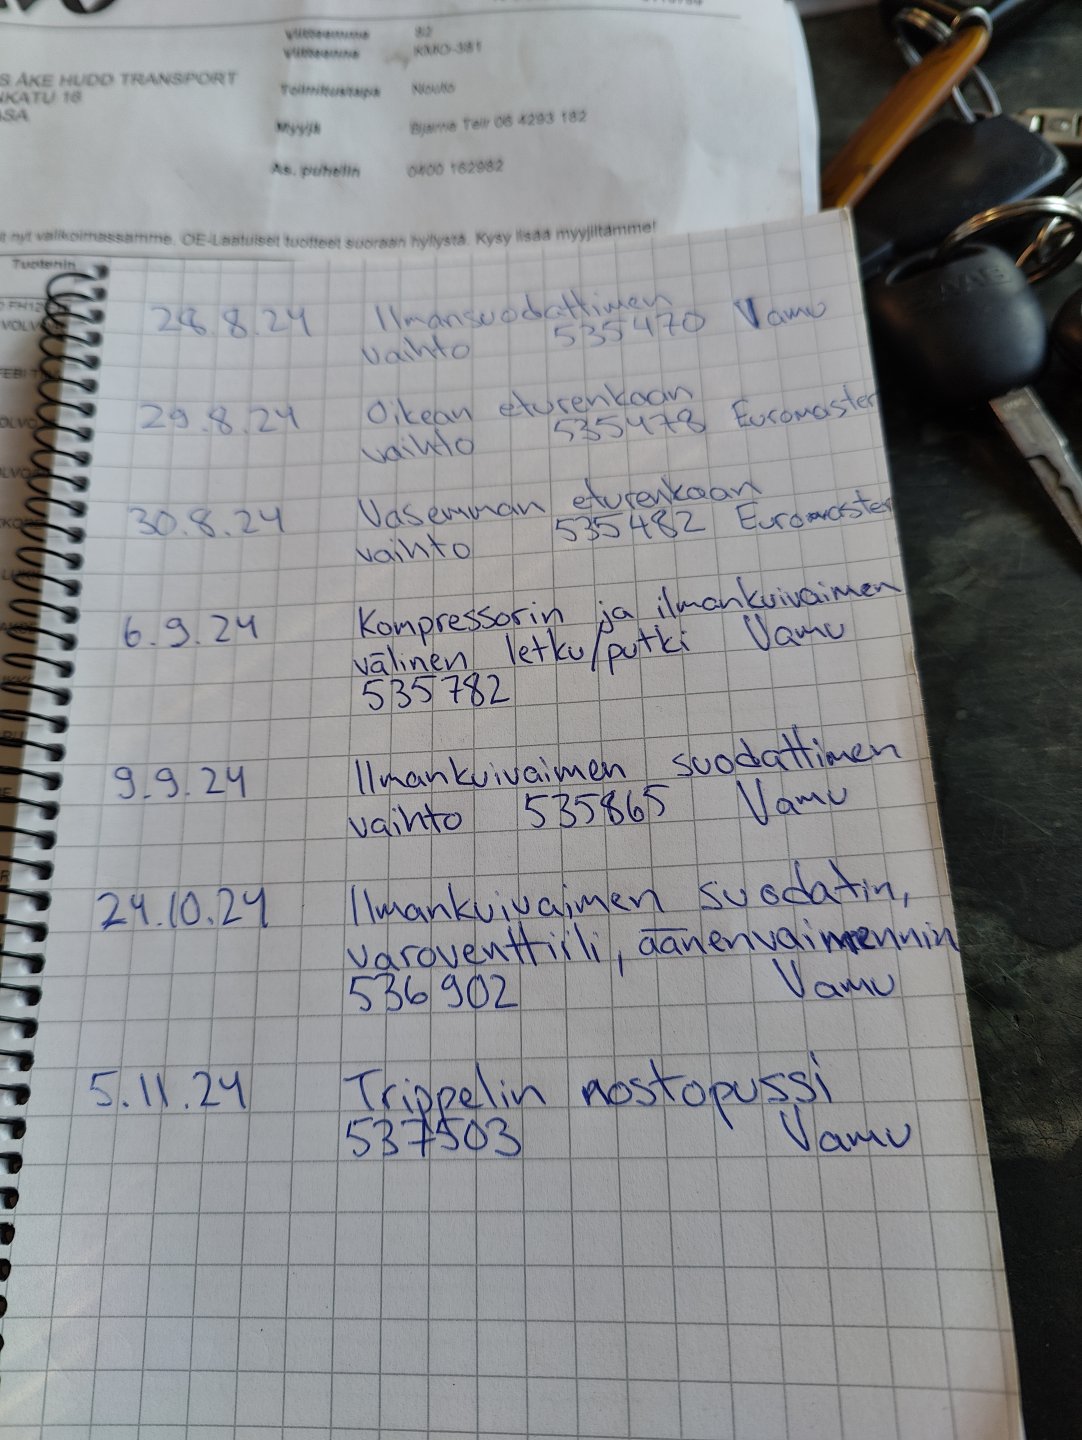 Viitteemme 92
Viitteenne KMO-381
S ÅKE HUDD TRANSPORT
NKATU 18
ASA
Toimitustapa Nouto
Myyjä Bjarne Teir 06 4293 182
As. puhelin 0400 162982
t nyt valikoimassamme. OE-Laatuiset tuotteet suoraan hyllystä. Kysy lisää myyjiltämme!
Tuotenin
28.8.24 Ilmansuodattimen
vaihto 535470 Vamu
29.8.24 Oikean eturenkaan
vaihto 535478 Euromaster
30.8.24 Vasemman eturenkaan
vaihto 535482 Euromaster
6.9.24 Kompressorin ja ilmankuivaimen
välinen letku/putki Vamu
535782
9.9.24 Ilmankuivaimen suodattimen
vaihto 535865 Vamu
24.10.24 Ilmankuivaimen suodatin,
varoventtiili, äänenvaimennin
536902 Vamu
5.11.24 Trippelin nostopussi
537503 Vamu